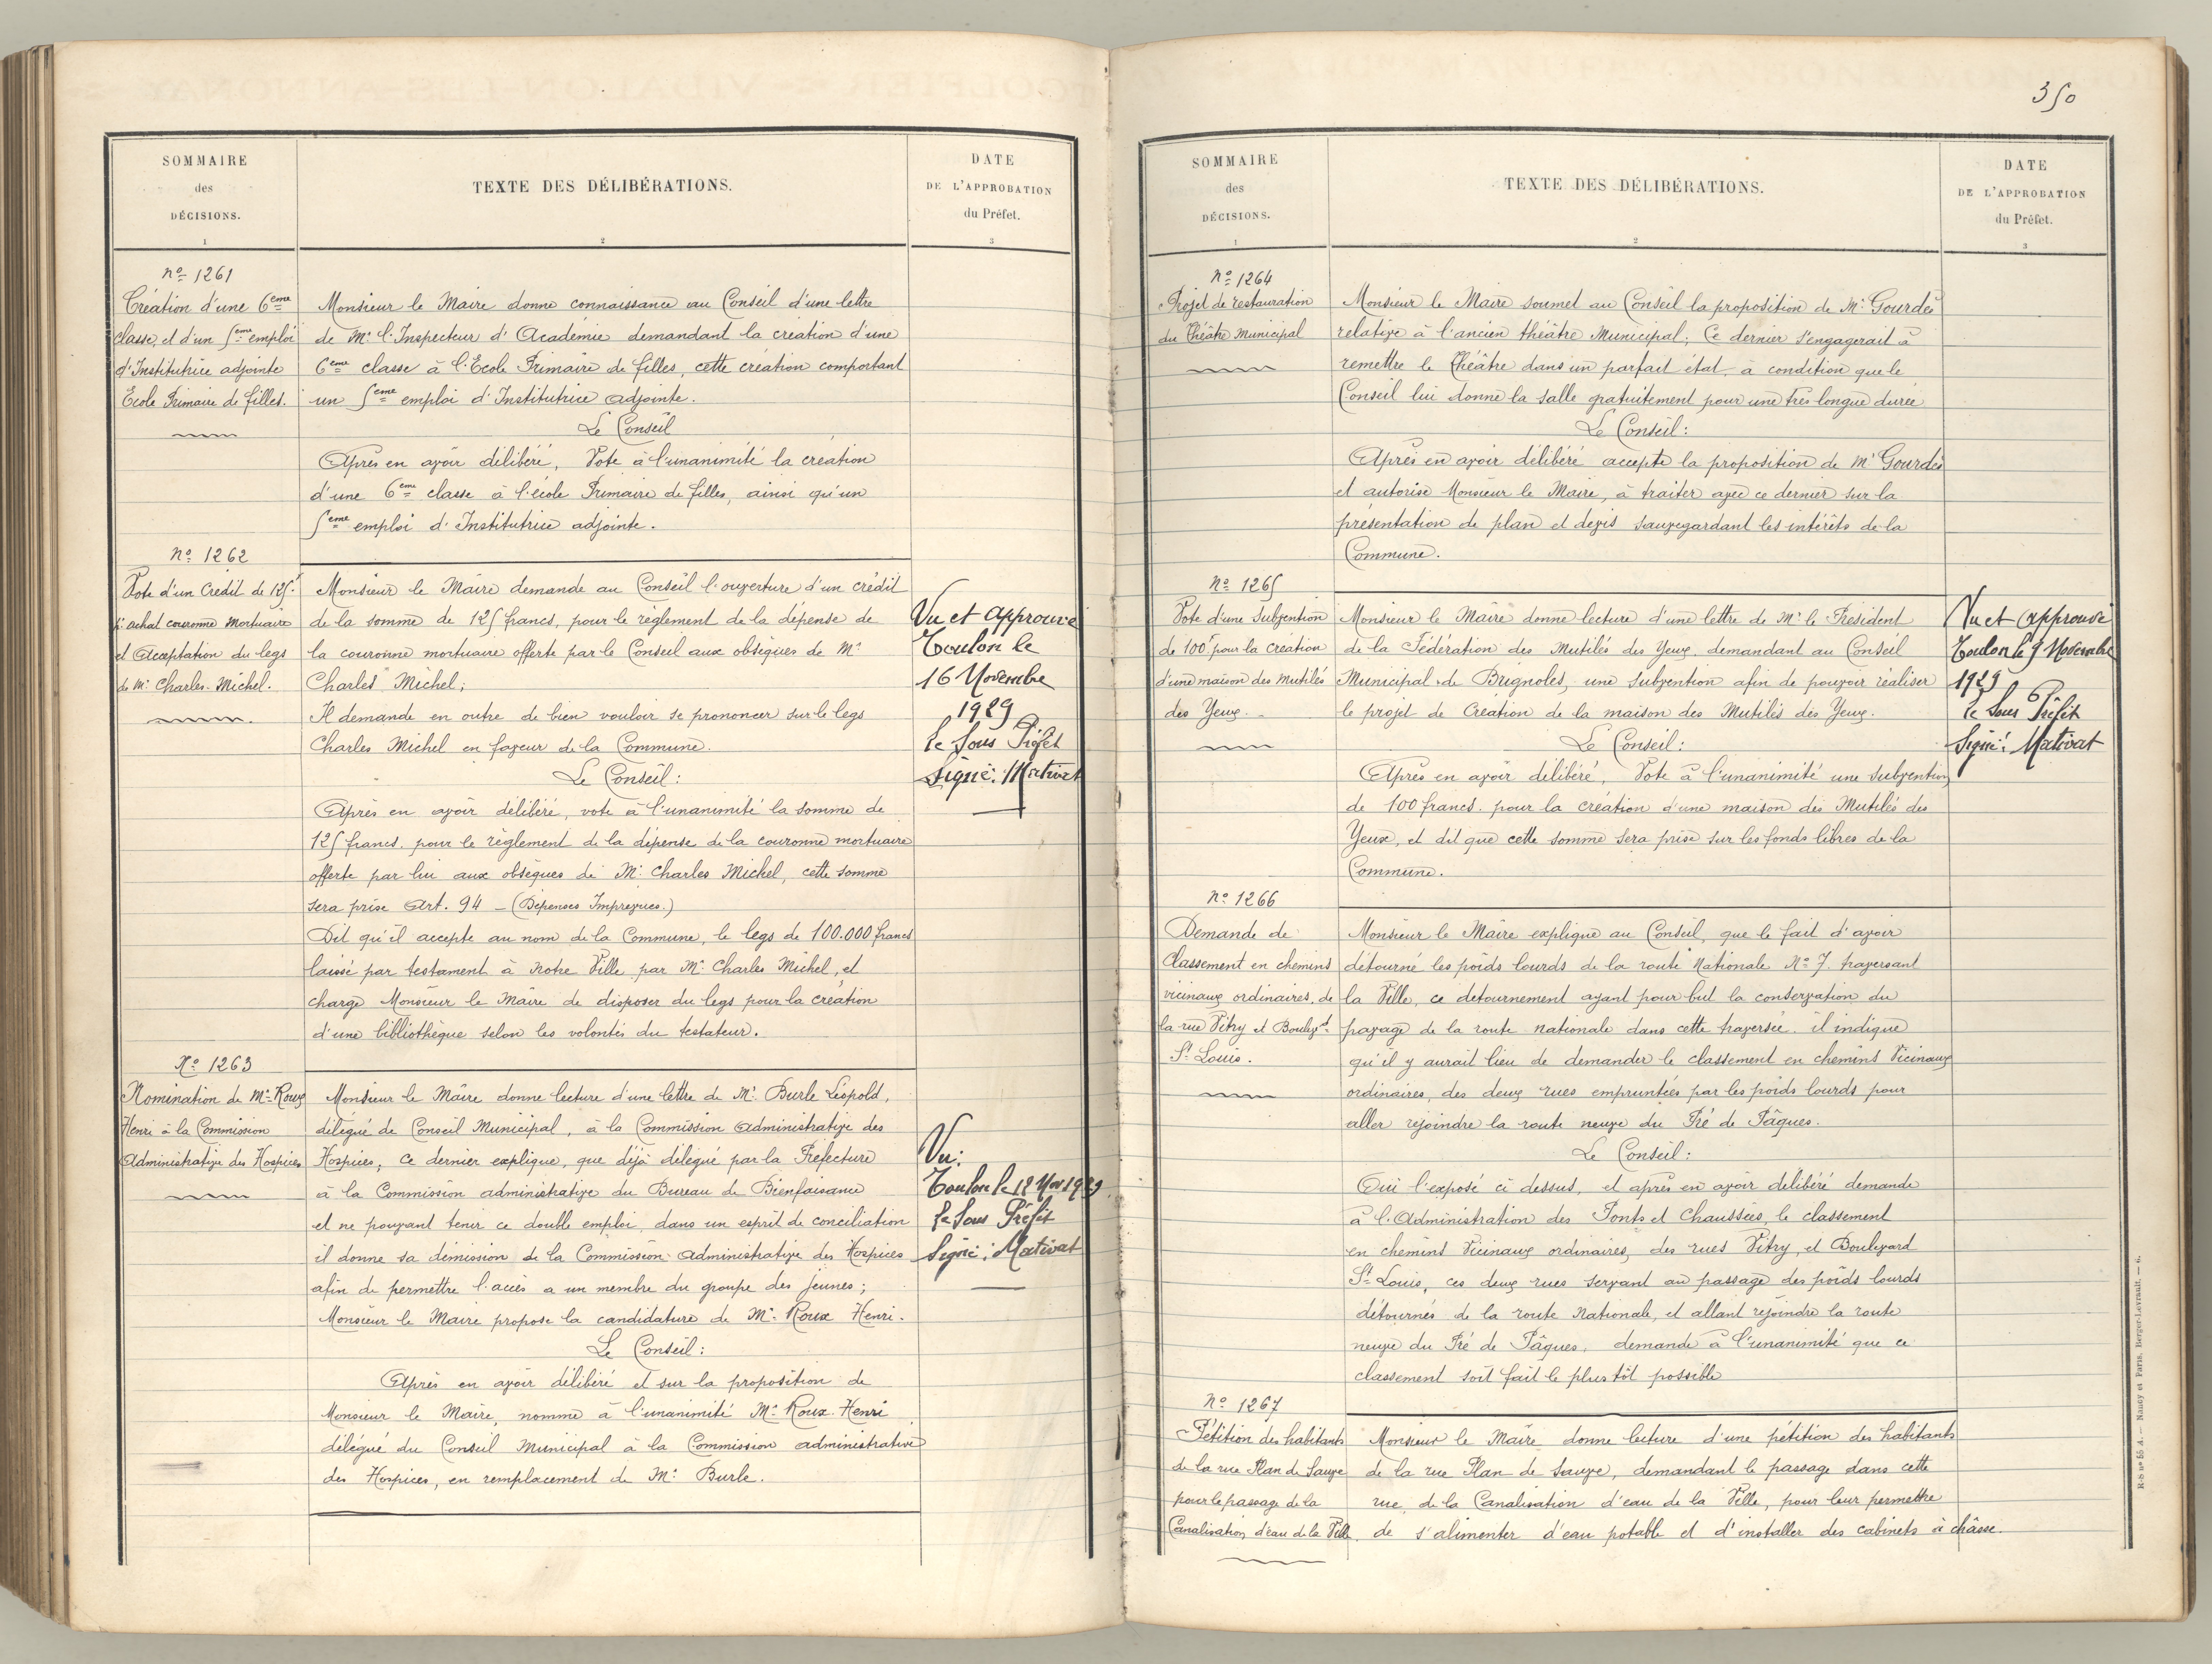 SOMMAIRE
des
DÉCISIONS.
1
TEXTE DES DÉLIBÉRATIONS.
2
DATE
DE L'APPROBATION
du Préfet.
3
No 1261
Création d'une 6eme
classe et d'un 5eme emploi
d'Institutrice adjointe
Ecole Primaire de filles.
Monsieur le Maire donne connaissance au Conseil d'une lettre
de Mr l'Inspecteur d'Academie demandant la création d'une
6eme classe à l'Ecole Primaire de filles, cette création comportant
un 5eme emploi d'Institutrice adjointe.
Le Conseil
Après en avoir délibéré, Vote à l'unanimité la création
d'une 6eme classe à l'école Primaire de filles, ainsi qu'un
5eme emploi d'Institutrice adjointe.
No 1262
Vote d'un Crédit de 125f.
pr achat couronne mortuaire
et Acceptation du legs
de Mr Charles-Michel.
Monsieur le Maire demande au Conseil l'ouverture d'un crédit
de la somme de 125 francs, pour le règlement de la dépense de
la couronne mortuaire offerte par le Conseil aux obsèques de Mr
Charles Michel;
Il demande en outre de bien vouloir se prononcer sur le legs
Charles Michel en faveur de la Commune.
Le Conseil:
Après en avoir délibéré, vote à l'unanimité la somme de
125 francs. pour le règlement de la dépense de la couronne mortuaire
offerte par lui aux obsèques de Mr Charles Michel, cette somme
sera prise Art. 94 - (Dépenses Imprévues.)
Dit qu'il accepte au nom de la Commune, le legs de 100.000 francs
laissé par testament à notre Ville par Mr Charles Michel, et
charge Monsieur le Maire de disposer du legs pour la création
d'une bibliothèque selon les volontés du testateur.
Vu et Approuvé
Toulon le
16 Novembre
1929
le Sous Préfet
Signé: Mativat
No 1263
Nomination de Mr Roux
Henri à la Commission
Administrative des Hospices
Monsieur le Maire donne lecture d'une lettre de Mr Burle Léopold,
délégué de Conseil Municipal, à la Commission Administrative des
Hospices; ce dernier explique, que déjà délégué par la Préfecture
à la Commission administrative du Bureau de Bienfaisance
et ne pouvant tenir ce double emploi, dans un esprit de conciliation
il donne sa démission de la Commission Administrative des Hospices
afin de permettre l'accès a un membre du groupe des jeunes;
Monsieur le Maire propose la candidature de Mr Roux Henri.
Le Conseil:
Après en avoir délibéré et sur la proposition de
Monsieur le Maire, nomme à l'unanimité Mr Roux Henri
délégué du Conseil Municipal à la Commission administrative
des Hospices, en remplacement de Mr Burle.
Vu:
Toulon le 12 Nov 1929
le Sous Préfet
Signé: Mativat
350
SOMMAIRE
des
DÉCISIONS.
1
TEXTE DES DÉLIBÉRATIONS.
2
DATE
DE L'APPROBATION
du Préfet.
3
No 1264
Projet de restauration
du Théâtre Municipal
Monsieur le Maire soumet au Conseil la proposition de Mr Gourdès
relative à l'ancien théâtre Municipal; Ce dernier s'engagerait à
remettre le théâtre dans un parfait état, à condition que le
Conseil lui donne la salle gratuitement pour une très longue durée
Le Conseil:
Après en avoir délibéré accepte la proposition de Mr Gourdès
et autorise Monsieur le Maire, à traiter avec ce dernier sur la
présentation de plan et devis sauvegardant les intérêts de la
Commune.
No 1265
Vote d'une subvention
de 100f pour la création
d'une maison des Mutilés
des Yeux.
Monsieur le Maire donne lecture d'une lettre de Mr le Président
de la Fédération des Mutilés des Yeux, demandant au Conseil
Municipal de Brignoles, une subvention afin de pouvoir réaliser
le projet de Création de la maison des Mutilés des Yeux.
Le Conseil:
Après en avoir délibéré, Vote à l'unanimité une subvention
de 100 francs. pour la création d'une maison des Mutilés des
Yeux, et dit que cette somme sera prise sur les fonds libres de la
Commune.
Vu et Approuvé
Toulon le 9 Novembre
1929
le Sous Préfet
Signé: Mativat
No 1266
Demande de
Classement en chemins
vicinaux ordinaires, de
la rue Vitry et Boulevd
St Louis.
Monsieur le Maire explique au Conseil, que le fait d'avoir
détourné les poids lourds de la route Nationale No 7. traversant
la Ville, ce détournement ayant pour but la conservation du
pavage de la route nationale dans cette traversée. il indique
qu'il y aurait lieu de demander le classement en chemins Vicinaux
ordinaires, des deux rues empruntées par les poids lourds pour
aller rejoindre la route neuve du Pré de Pâques.
Le Conseil:
Oui l'exposé ci dessus, et après en avoir délibéré demande
à l'Administration des Ponts et Chaussées, le classement
en chemins Vicinaux ordinaires, des rues Vitry, et Boulevard
St Louis, ces deux rues servant au passage des poids lourds
détournés de la route Nationale, et allant rejoindre la route
neuve du Pré de Pâques, demande à l'unanimité que ce
classement soit fait le plus tôt possible
No 1267
Pétition des habitants
de la rue Plan de Sauve
pour le passage de la
Canalisation d'eau de la Ville
Monsieur le Maire donne lecture d'une pétition des habitants
de la rue Plan de Sauve, demandant le passage dans cette
rue de la Canalisation d'eau de la Ville, pour leur permettre
de s'alimenter d'eau potable et d'installer des cabinets à châsse.
R-S No 55 A. — Nancy et Paris, Berger-Levrault. — 6.